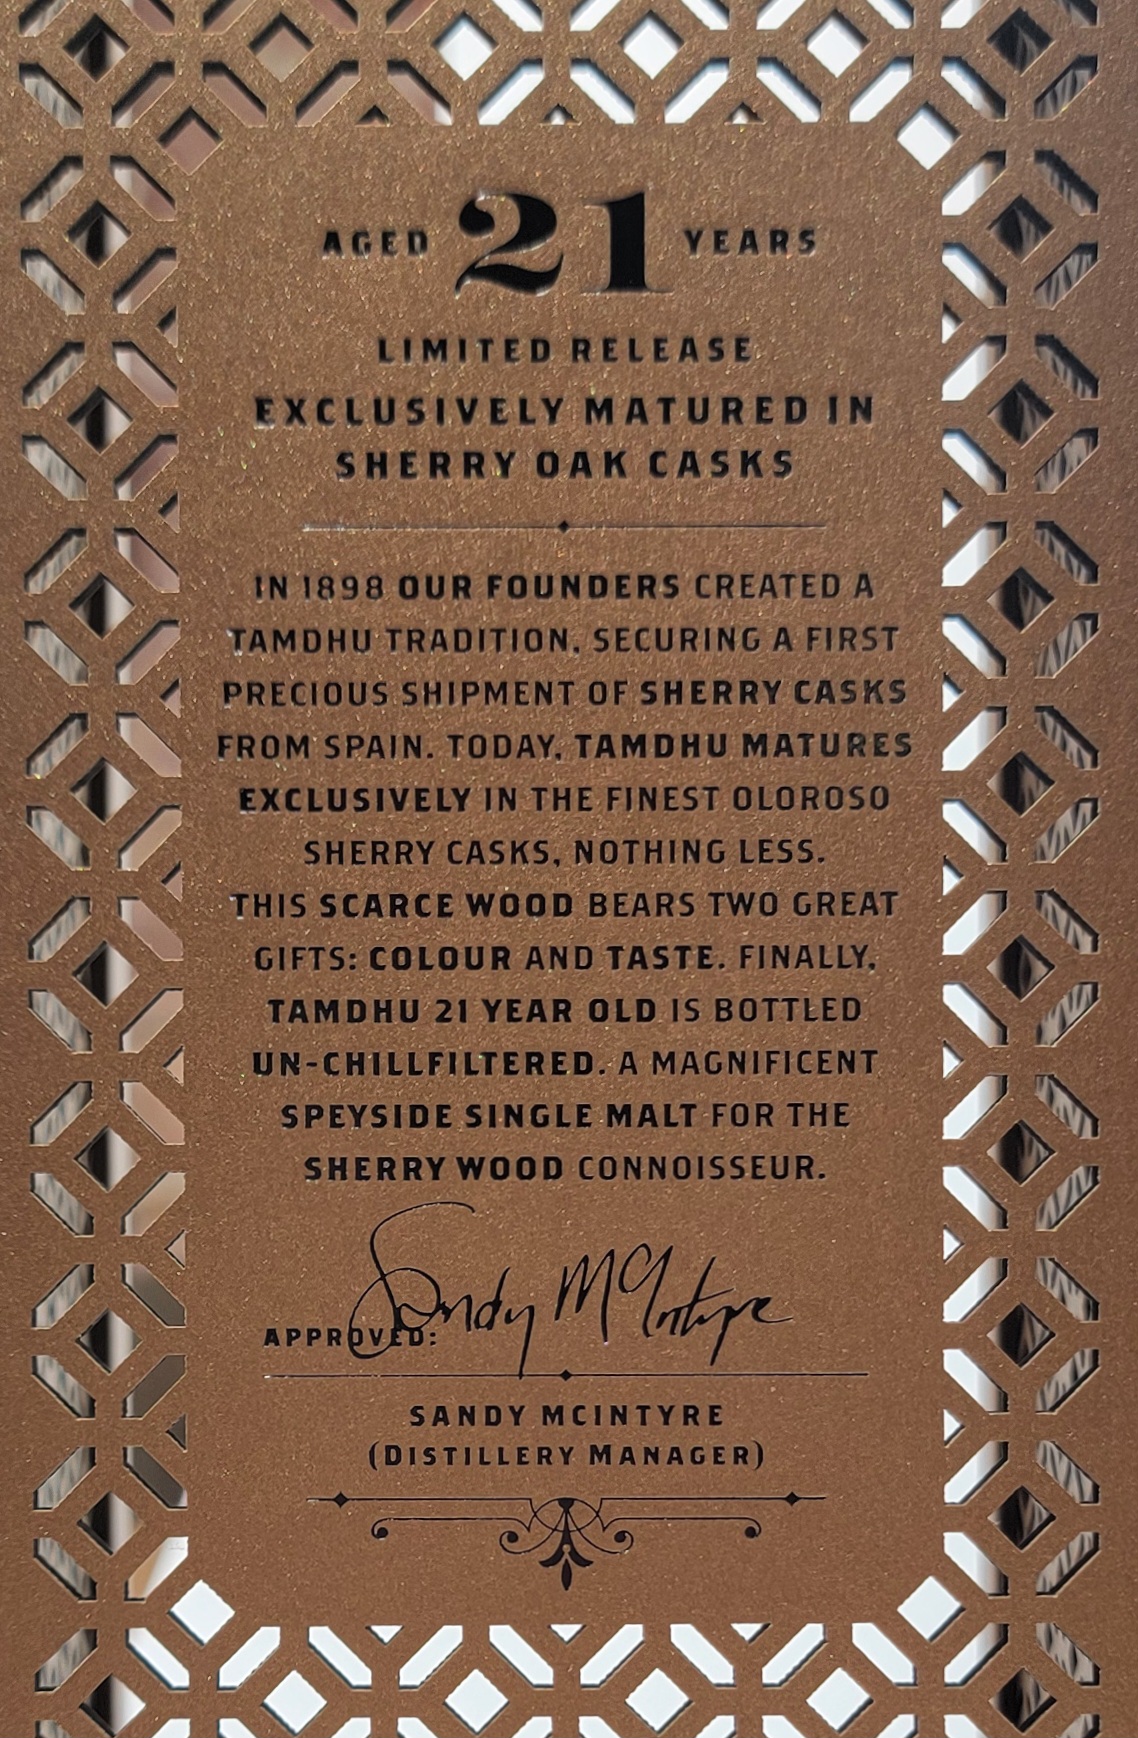 AGED 21 YEARS
LIMITED RELEASE
EXCLUSIVELY MATURED IN
SHERRY OAK CASKS
IN 1898 OUR FOUNDERS CREATED A
TAMDHU TRADITION, SECURING A FIRST
PRECIOUS SHIPMENT OF SHERRY CASKS
FROM SPAIN. TODAY, TAMDHU MATURES
EXCLUSIVELY IN THE FINEST OLOROSO
SHERRY CASKS, NOTHING LESS.
THIS SCARCE WOOD BEARS TWO GREAT
GIFTS: COLOUR AND TASTE. FINALLY,
TAMDHU 21 YEAR OLD IS BOTTLED
UN-CHILLFILTERED. A MAGNIFICENT
SPEYSIDE SINGLE MALT FOR THE
SHERRY WOOD CONNOISSEUR.
APPROVED: Sandy McIntyre
SANDY MCINTYRE
(DISTILLERY MANAGER)